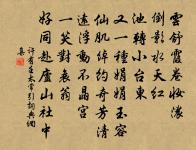 雲舒霞卷妝濃
倒影水天紅
池轉小台東
又一種娟娟玉容
仙肌綽約奇芳清
遠浮動水晶宮
一笑對衰翁
好同赴廬山社中
許有壬太常引詞典網